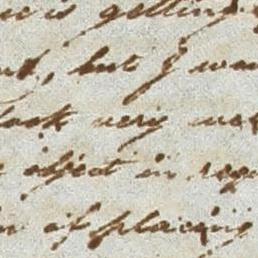 is getting
but I wan
look very
object in reg
of placing